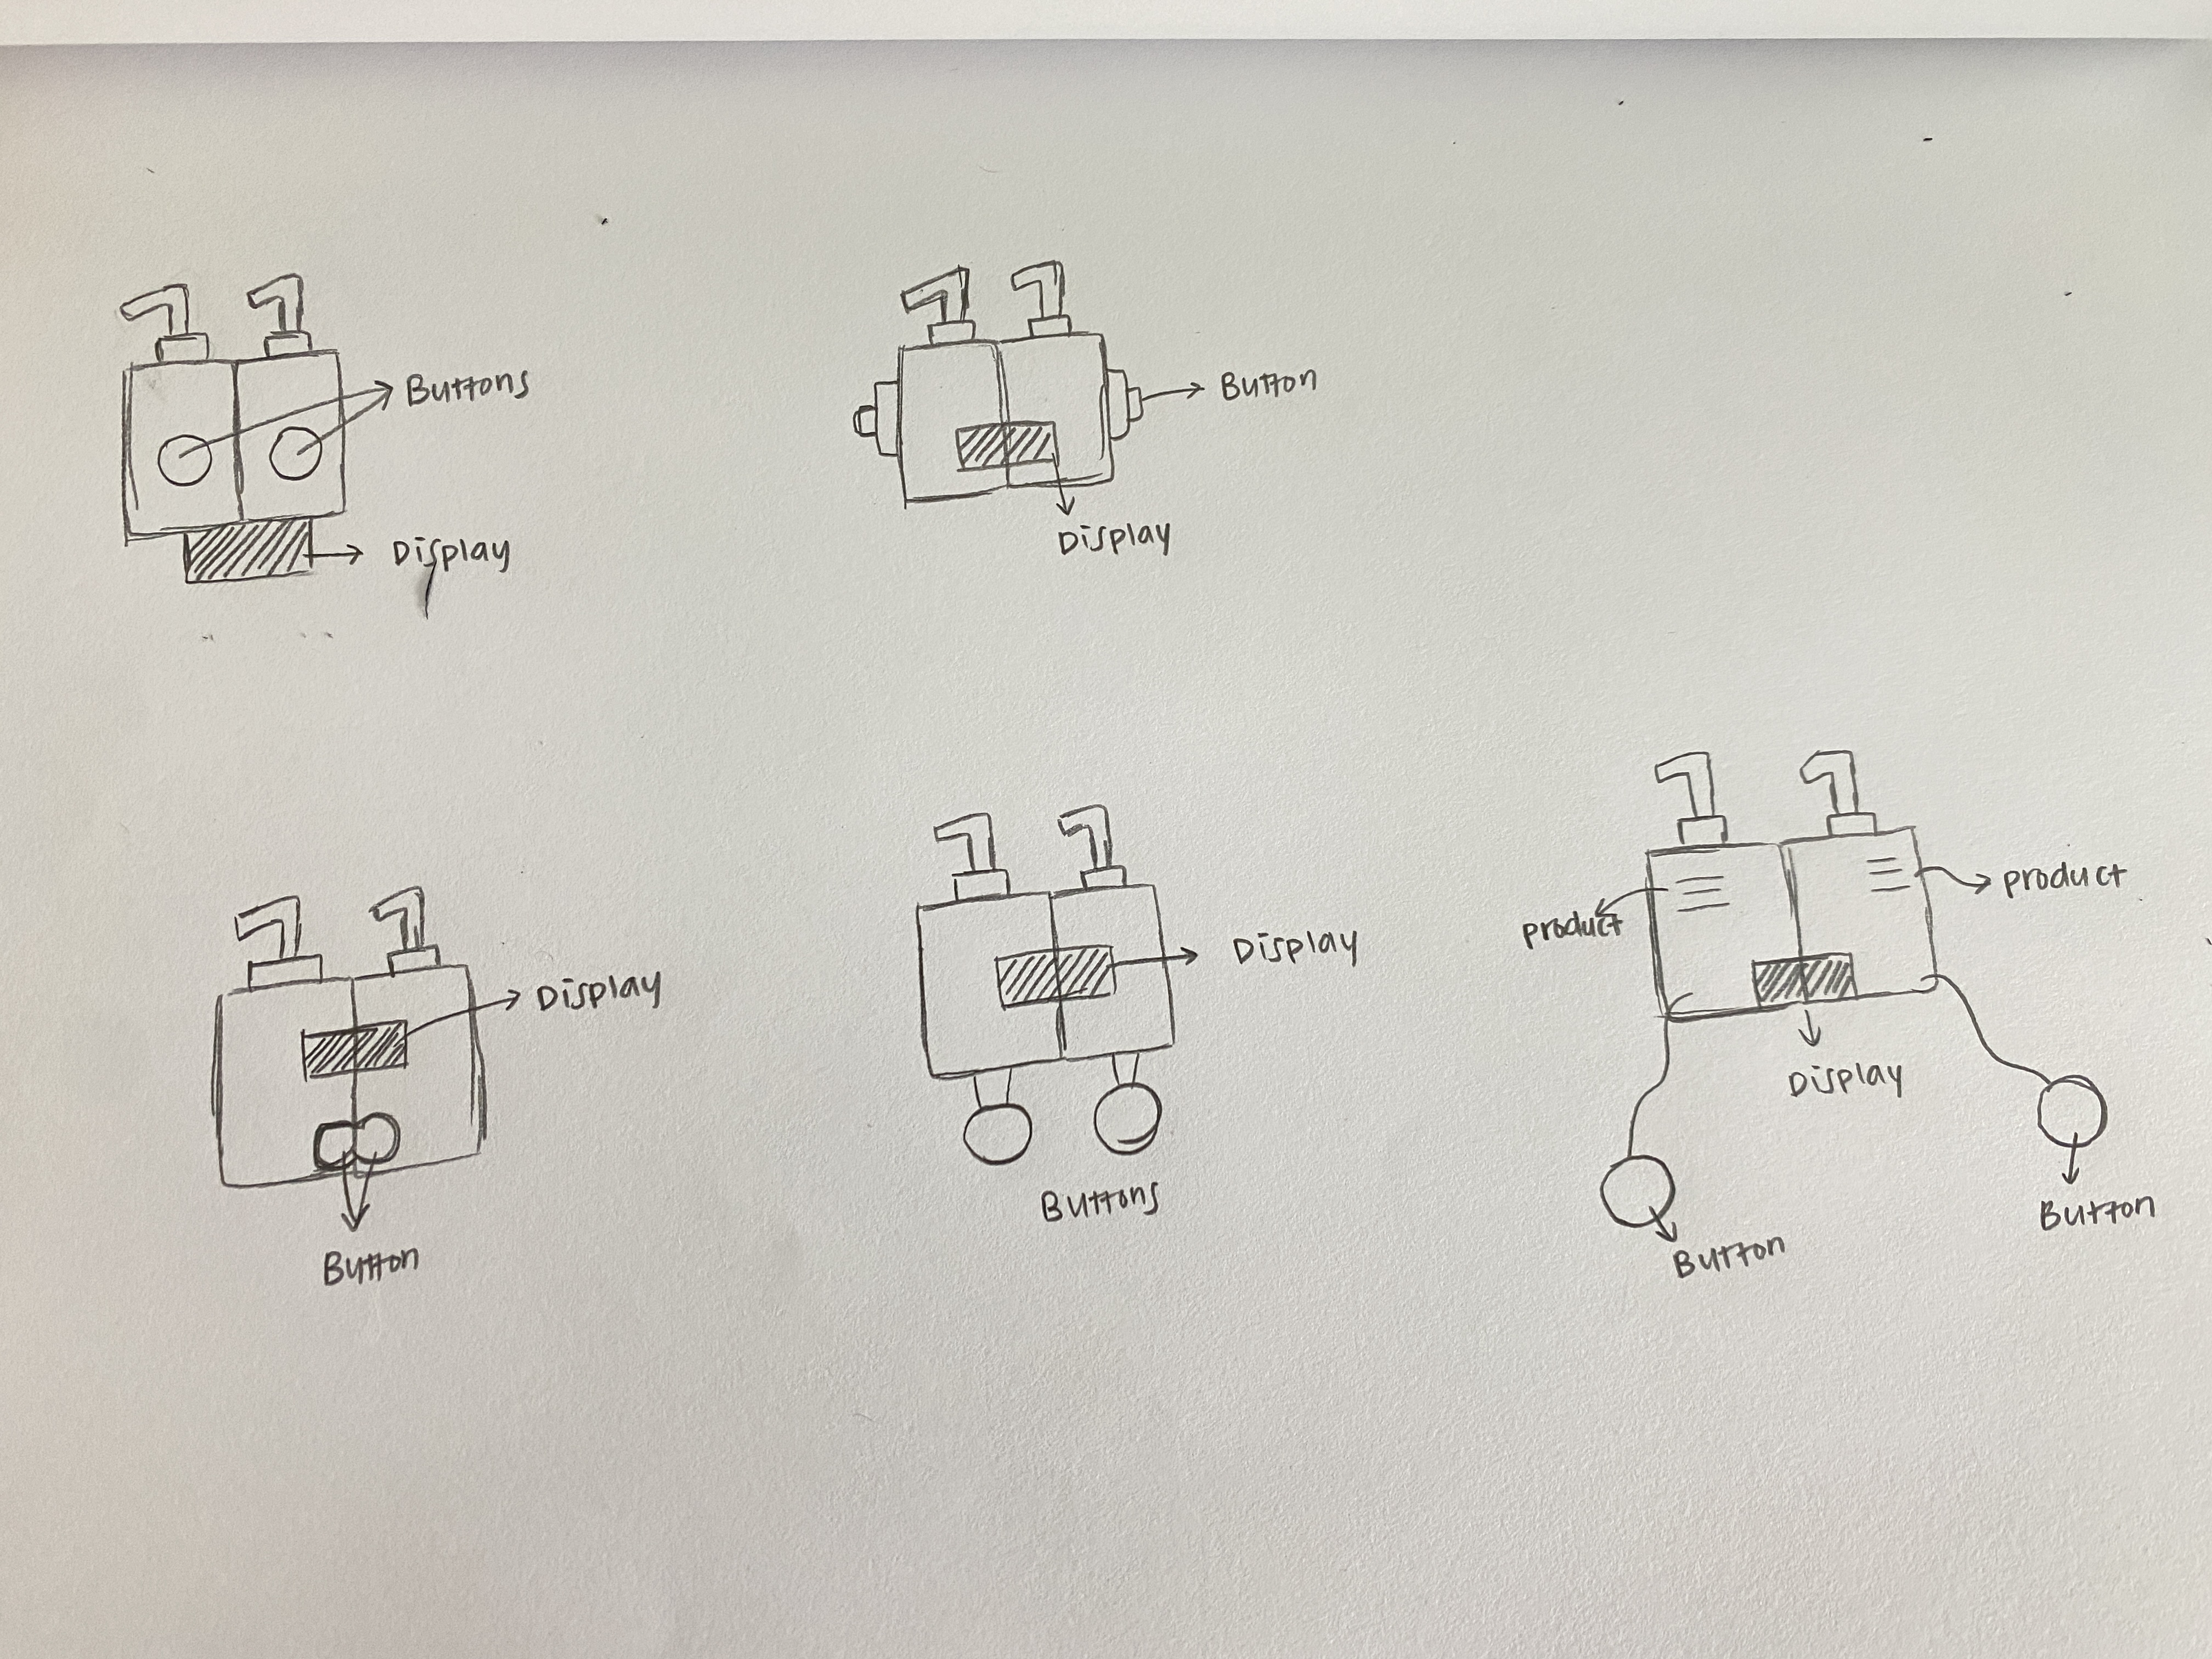 Buttons
Display
Button
Display
Display
Button
Display
Buttons
product
product
Display
Button
Button